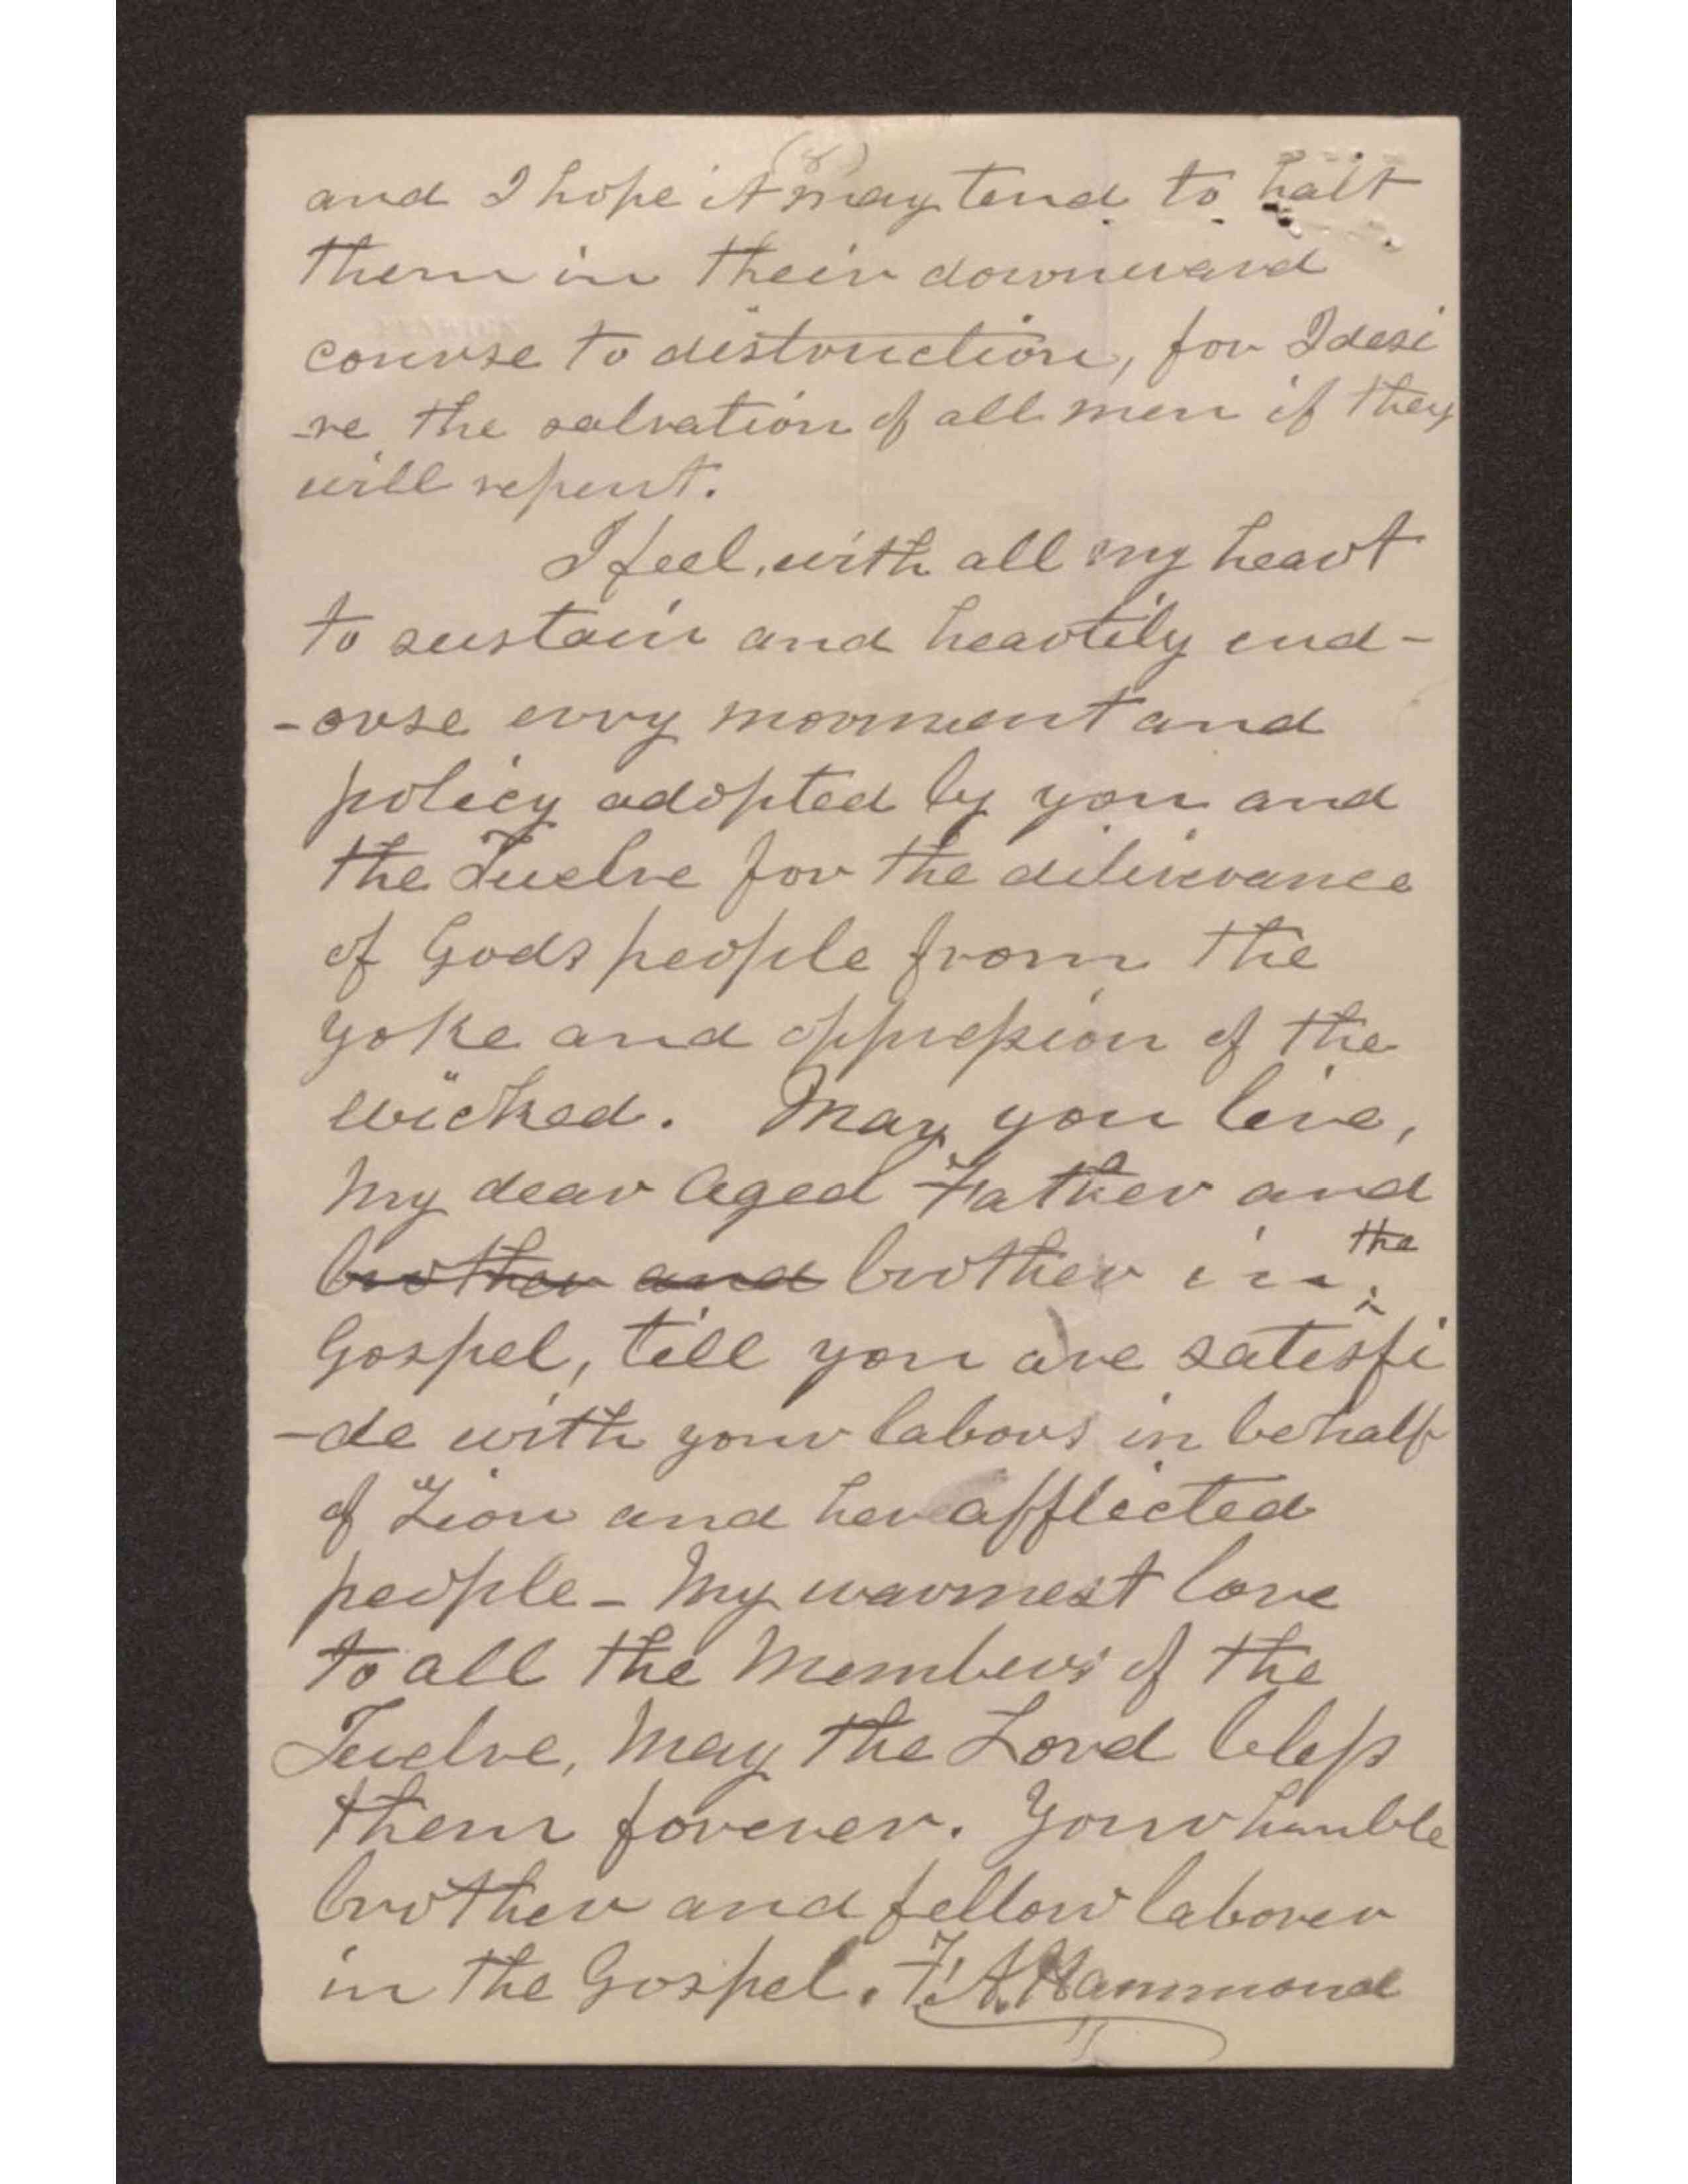 (8)
and I hope it may tend to halt
them in their downward
course to distruction, for I desi
-re the salvation of all men if they
will repent.
I feel, with all my heart
to sustain and heartily end-
-orse evry movment and
policy adopted by you and
the Twelve for the diliverance
of Gods people from the
yoke and oppression of the
wicked. May you live,
my dear aged Father and
brother and brother in the
Gospel, till you are satisfi
-de with your labors in behalf
of Zion and her afflicted
people - My warmest love
to all the Members of the
Twelve, May the Lord bless
them forever. Your humble
brother and fellow laborer
in the Gospel. F. A. Hammond